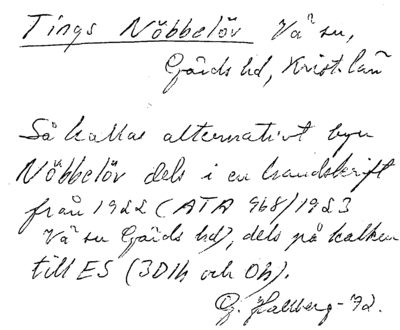 Tings Nöbbelöv Vä sn,
Gärds hd, Krist. län
Så kallas alternativt byn
Nöbbelöv dels i en handskrift
från 1922 (ATA 968/1923
Vä sn Gärds hd), dels på kalken
till ES (3D1h och 0h).
G. Hallberg -72.